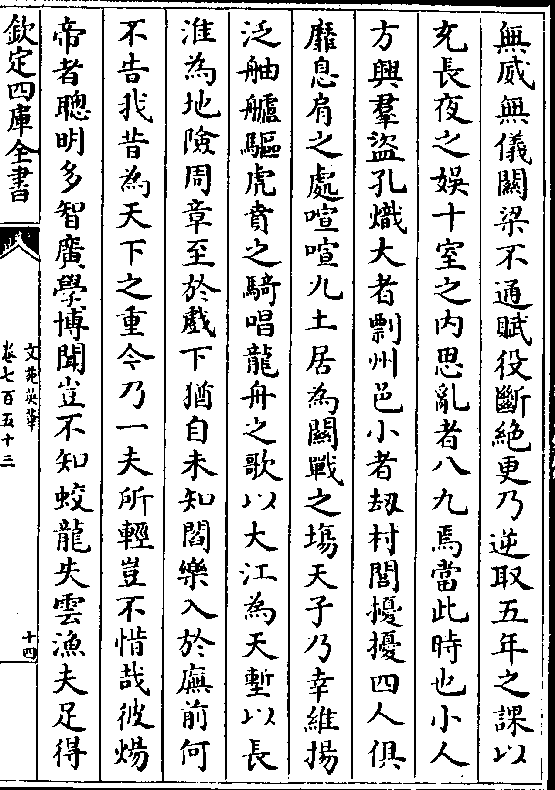 無威無儀關梁不通賦役斷絶更乃逆取五年之課以
充長夜之娱十室之内思亂者八九焉當此時也小人
方興羣盜孔熾大者剽州邑小者刼村閭擾擾四人俱
靡息肩之處喧喧九土居為鬭戰之塲天子乃幸維揚
泛舳艫驅虎賁之騎唱龍舟之歌以大江為天塹以長
淮為地險周章至於戲下猶自未知閻樂入於廡前何
不告我昔為天下之重今乃一夫所輕豈不惜哉彼煬
帝者聰明多智廣學博聞豈不知蛟龍失雲漁夫足得
欽定四庫全書
文苑英華
卷七百五十三
十四